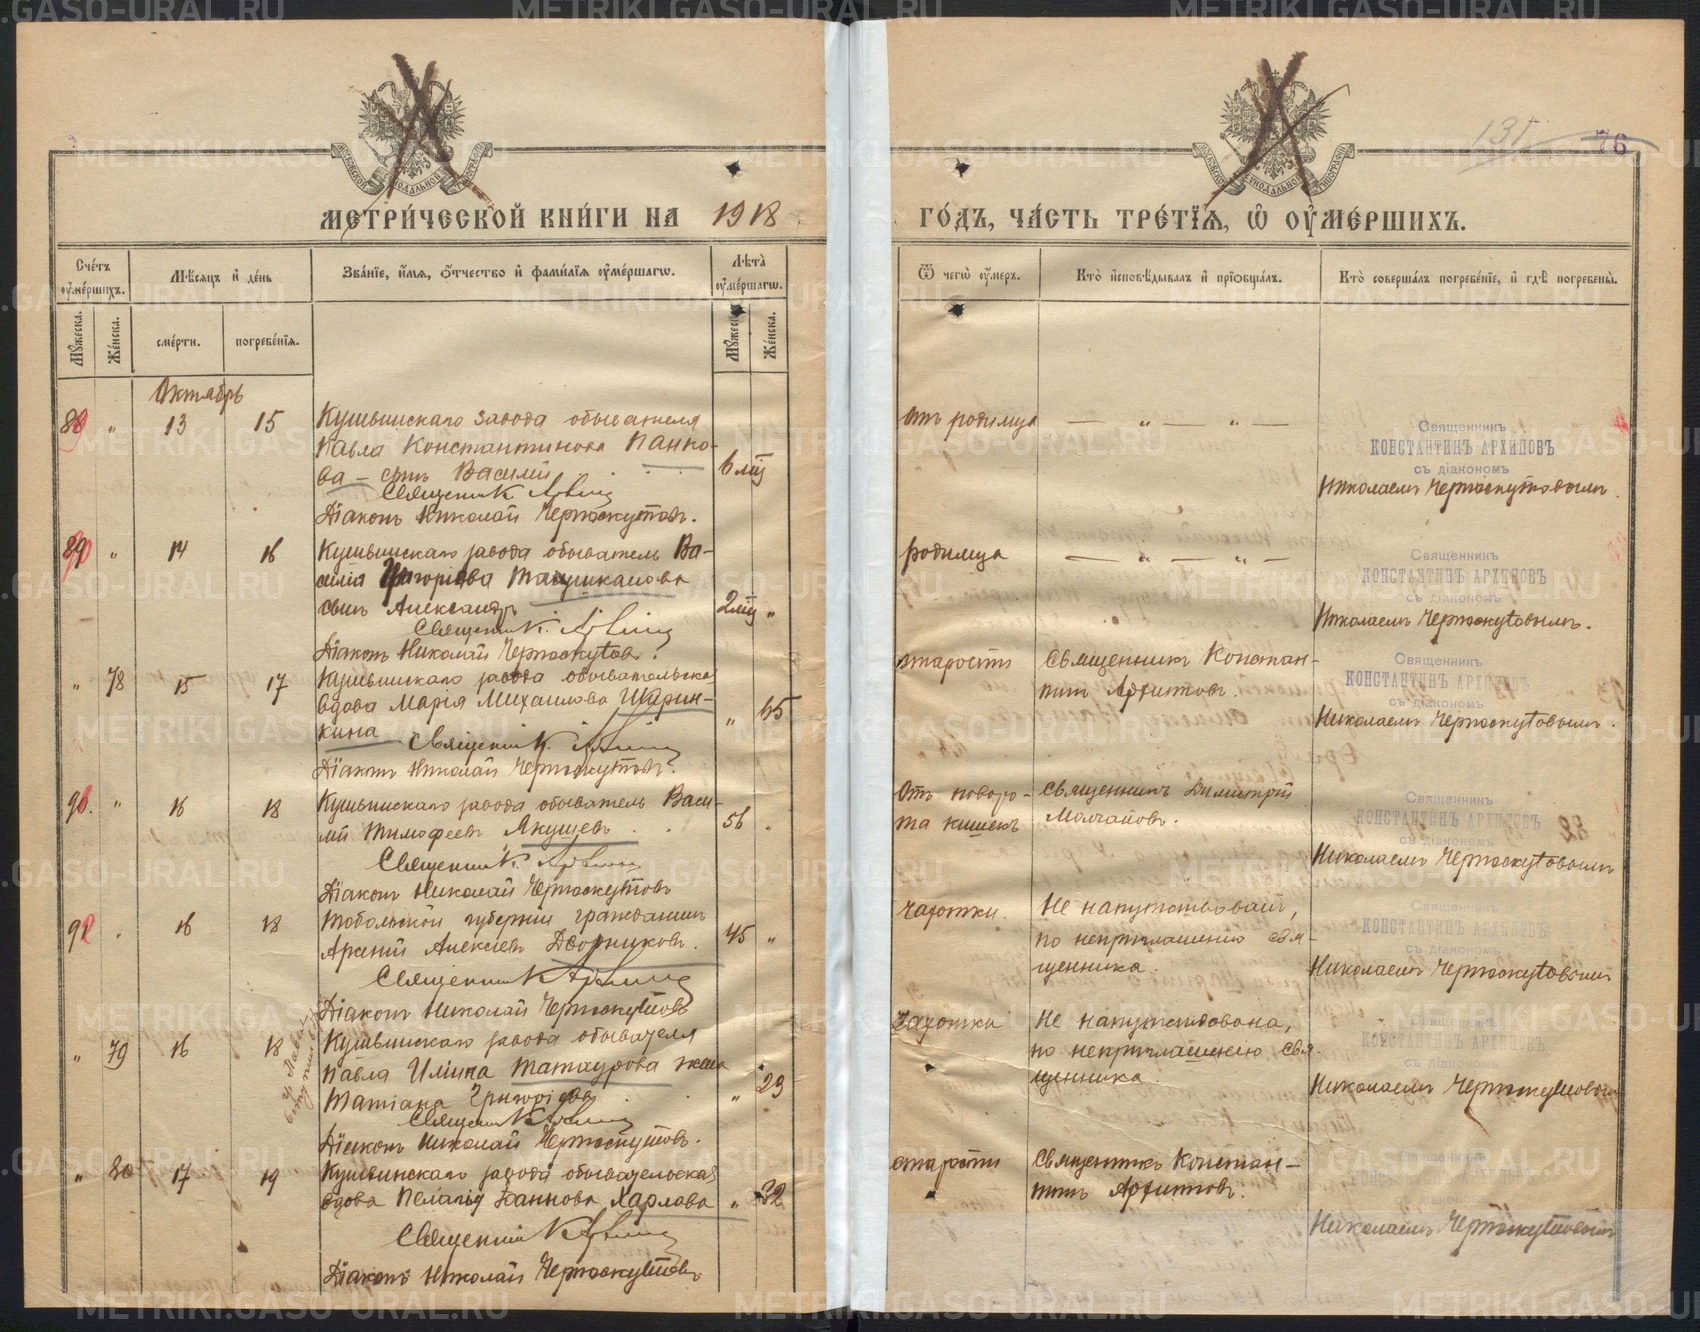 МЕТРИ́ЧЕСКОЙ КНИ́ГИ НА 1918
ГО́ДЪ, ЧА́СТЬ ТРЕ́ТІѦ, Ѡ҆ ОУ҆МЕ́РШИХЪ.
135 76
Сче́тъ оу҆ме́ршихъ.
Мѣ́сѧцъ и҆ де́нь
Зва́нїе, и҆́мѧ, ѻ҆́тчество и҆ фами́лїѧ оу҆ме́ршагѡ.
Лѣ́та̀ оу҆ме́ршагѡ.
Ѿ чегѡ̀ оу҆́меръ.
Кто̀ и҆сповѣ́дывалъ и҆ прїѡбща́лъ.
Кто̀ соверша́лъ погребе́нїе, и҆ гдѣ̀ погребены̀.
Мꙋ́жеска. Же́нска. сме́рти. погребе́нїѧ. Же́нска.
Октябрь
88 " 13 15 Кушвинскаго завода обывателя
Павла Константинова Панко-
ва – сынъ Василій 6 мц
Священник
Діаконъ Николай Черноскутовъ.
отъ родимца — " — " —
Священникъ
КОНСТАНТИНЪ АРХИПОВЪ
съ діакономъ
Николаемъ Черноскутовымъ.
89 " 14 16 Кушвинскаго завода обыватель Ва-
силія Григоріева
сынъ Александръ 2 мц "
Священник.
Діаконъ Николай Черноскутов.
родимца — " — " —
Священникъ
КОНСТАНТИНЪ АРХИПОВЪ
съ діакономъ
Николаемъ Черноскутовымъ.
" 78 15 17 Кушвинскаго завода обывательская
вдова Марія Михаилова Ширин-
кина " 65
Священник.
Діаконъ Николай Черноскутовъ.
старости Священникъ Констан-
тинъ Архиповъ.
Священникъ
КОНСТАНТИНЪ АРХИПОВЪ
съ діакономъ
Николаемъ Черноскутовымъ.
90. " 16 18 Кушвинскаго завода обыватель Васи-
лій Тимофеевъ Якушевъ 56 "
Священник
Діаконъ Николай Черноскутовъ
Отъ поворо- Священникъ Димитрій
та кишекъ
Священникъ
КОНСТАНТИНЪ АРХИПОВЪ
съ діакономъ
Николаемъ Черноскутовымъ
16 18 Тобольской губерніи гражданинъ
Арсеній Алексіевъ Дворниковъ. 45 "
Священник
Діаконъ Николай Черноскутовъ
чахотки. Не напутствованъ,
по неприглашенію свя-
щенника.
Священникъ
КОНСТАНТИНЪ АРХИПОВЪ
съ діакономъ
Николаемъ Черноскутовымъ
" 79 16 18 Кушвинскаго завода обывателя
Павла Ильина Татаурова жена
Татіана Григоріева " 23
Священник
Діаконъ Николай Черноскутовъ.
чахотки Не напутствована,
по неприглашенію свя-
щенника.
Священникъ
КОНСТАНТИНЪ АРХИПОВЪ
съ діакономъ
Николаемъ Черноскутовымъ
" 80 17 19 Кушвинскаго завода обывательская
вдова Пелагія Харлова "
Священник
Діаконъ Николай Черноскутовъ
старости Священникъ Констан-
тинъ Архиповъ.
Николаемъ Черноскутовымъ
METRIKI.GASO-URAL.RU